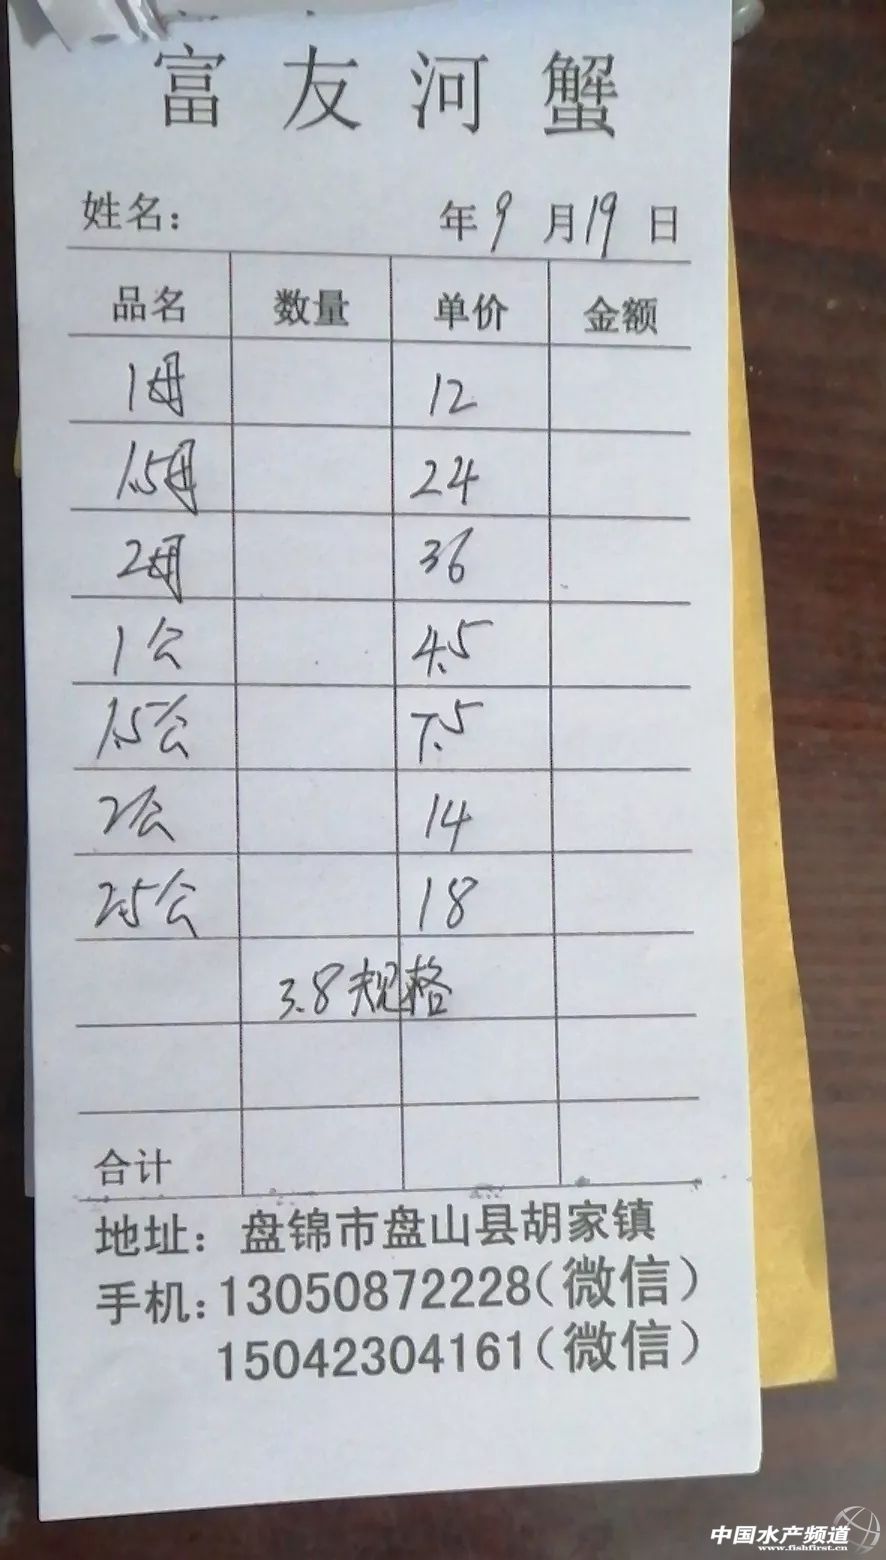 富友河蟹
姓名： 年9月19日
品名 数量 单价 金额
1母 12
1.5母 24
2母 36
1公 4.5
1.5公 7.5
2公 14
2.5公 18
3.8规格
合计
地址：盘锦市盘山县胡家镇
手机：13050872228（微信）
15042304161（微信）
中国水产频道
www.fishfirst.cn